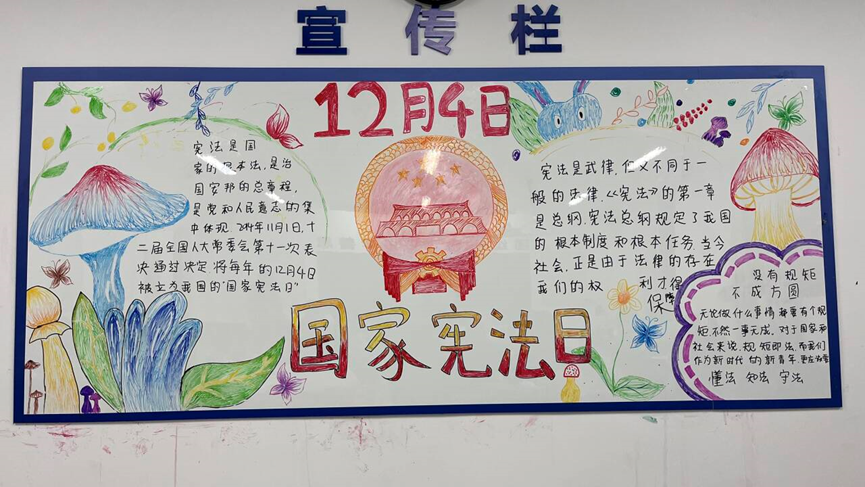 宣传栏
12月4日
宪法是国
家的根本法,是治
国安邦的总章程,
是党和人民意志的集
中体现 2014年11月1日,十
二届全国人大常委会第十一次表
决通过决定将每年的12月4日
被立为我国的"国家宪法日"
宪法是武律,但又不同于一
般的法律,《宪法》的第一章
是总纲,宪法总纲规定了我国
的根本制度和根本任务当今
社会,正是由于法律的存在
我们的权 利才得
保障
国家宪法日
没有规矩
不成方圆
无论做什么事情都要有个规
矩不然一事无成,对于国家和
社会来说,规矩即法,而我们
作为新时代的新青年更应
懂法 知法 守法